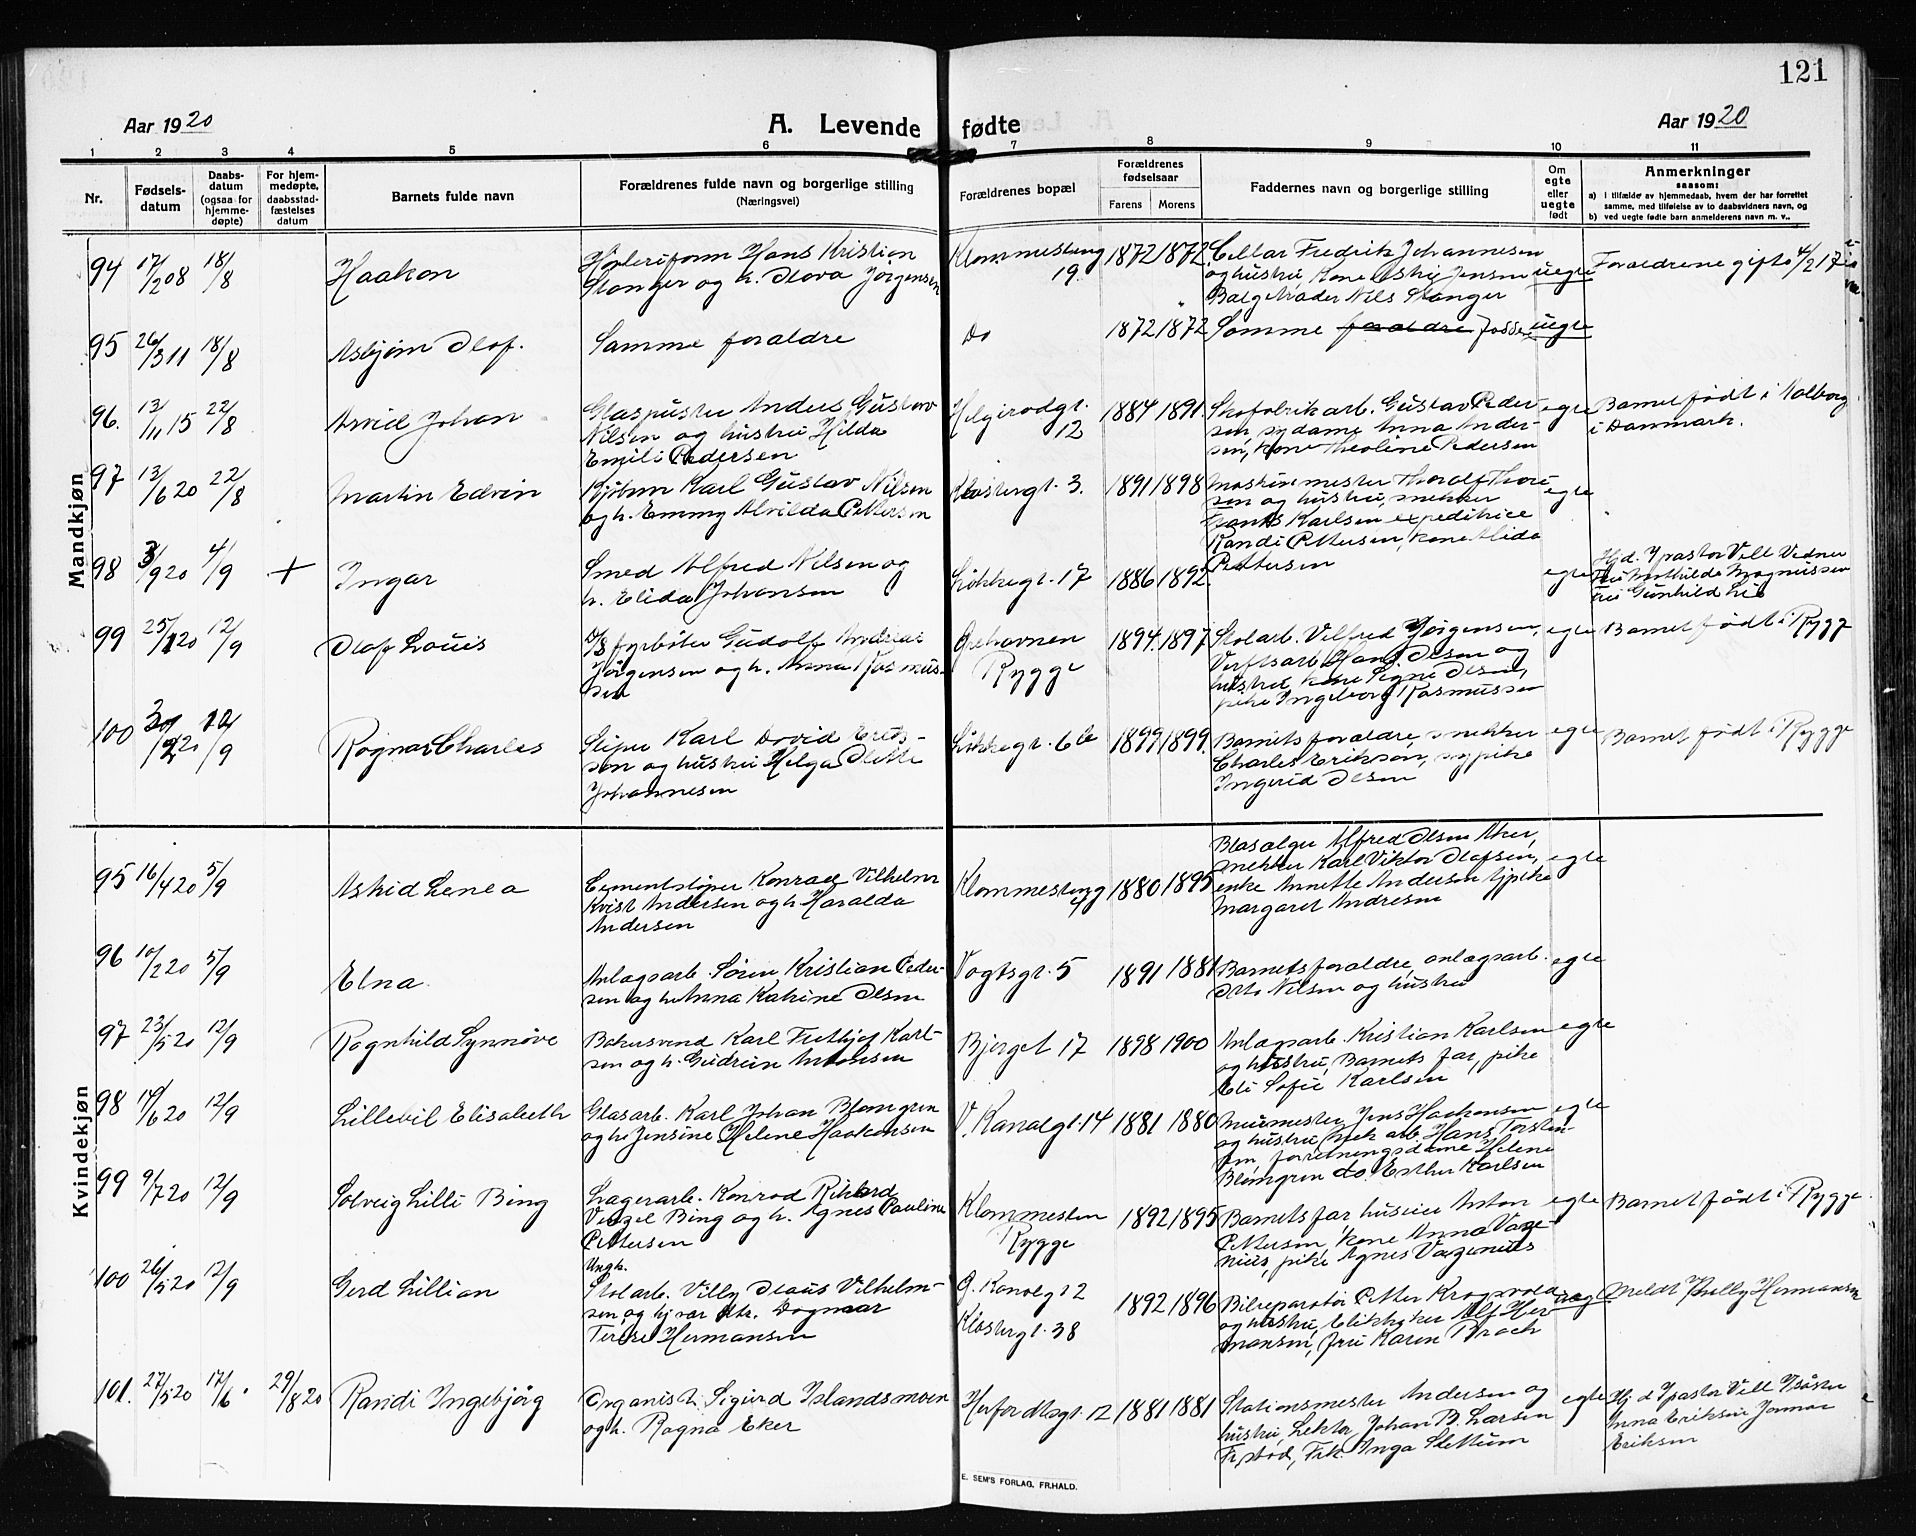 121
Aar 1920
A. Levende fødte
Aar 1920
1 2 3 4 5 6 7 8 9 10 11
Nr.
Fødsels-
datum
Daabs-
datum
(ogsaa for
hjemme-
døpte)
For hjem-
medøpte,
daabsstad-
fæstelses
datum
Barnets fulde navn
Forældrenes fulde navn og borgerlige stilling
(Næringsvei)
Forældrenes bopæl
Forældrenes
fødselsaar
Farens Morens
Faddernes navn og borgerlige stilling
Om
egte
eller
uegte
født
Anmerkninger
saasom:
a) i tilfælde av hjemmedaab, hvem der har forrettet
samme, med tilføielse av to daabsvidners navn, og
b) ved uegte fødte barn anmelderens navn m. v..
Mandkjøn
94 17/2 08 18/8
Haakon
Hans Kristian
Stanger og h. Olava Jørgensen
Klommesteng
19
1872 1872
Fredrik Johannesen
og hustru, Kone Jensen
Nils Stanger
uegte
Foraldrene gift 4/2 17
95 26/3 11 18/8
Asbjørn Olaf.
Samme foraldre
Do
1872 1872
Samme foraldre
uegte
96. 13/11 15 22/8
Arvid Johan
Glaspuster Anders Gustav
Nilsen og hustru Hilda
Emilie Pedersen
Helgerødgt.
12
1884 1891
Skofabrikarb. Gustav Peder-
sen, sydame Anna Ander-
sen, kone Theoline Pedersen
egte
Barnet født i Aalborg
i Danmark.
97 13/6 20 22/8
Martin Edvin
Karl Gustav Nilsen
og h. Emmy Alvilda Pettersen
Klostergt. 3.
1891 1898
Maskinmester Thoralf Thore
sen og hustru, snekker
Karlsen, expeditrice
Randi Pettersen, kone Alida
Pettersen
egte
98 3/9 20 4/9 +
Ingar
Smed Alfred Nilsen og
h. Elida Johansen
Løkkegt. 17
1886 1892
egte
Hjd. v/pastor Vill Vedner
Fru Mathilde Magnussen
Fru Gunhild Lie
99 25/1 20 12/9
Olaf Louis
D/S fyrbøter Gudolf Andreas
Jørgensen og h. Anna Rasmus-
sen
Grehavnen
Rygge
1894 1897
Stolarb. Vilfred Jørgensen,
Verftsarb. Hans Olsen og
hustru, kone Signe Olsen,
pike Ingeborg Rasmussen
egte
Barnet født i Rygge
100 30/12 20 12/9
Ragnar Charles
Sliper Karl David Erik-
sen og hustru Helga Olette
Johannesen
Løkkegt. 6b
1899 1899
Barnets foraldre, snekker
Charles Erikson, sypike
Ingerid Olsen
egte
Barnet født i Rygge
Kvindekjøn
95 16/4 20 5/9
Astrid Lenea
Cementstøper Konrad Vilhelm
Kvist Andersen og h. Haralda
Andersen
Klommesteng
4
1880 1895
Alfred Olsen Aker,
snekker Karl Viktor Olafsen,
enke Annette Andersen, tjpike
Margaret Andresen
egte
96 10/2 20 5/9
Elna
Anlægsarb. Søren Kristian Peder-
sen og h. Anna Katrine Olsen
Vogtsgt. 5
1891 1881
Barnets foraldre, anlægsarb.
Otto Nilsen og hustru
egte
97 23/5 20 12/9
Ragnhild Synnøve
Bakersvend Karl Fritjof Karl-
sen og h. Gudrun Antonsen
Bjerget 17
1898 1900
Anlægsarb. Kristian Karlsen
og hustru, Barnets far, pike
Eli Sofie Karlsen
egte
98 14/6 20 12/9
Lillebil Elisabeth
Glasarb. Karl Johan Blomgren
og h. Jensine Helene Haakonsen
V. Kanalgt. 14
1881 1880
Murmester Jens Haakonsen
og hustru, mek arb. Hans Torsten-
sen, forretningsdame Helene
Blomgren do. Esther Karlsen
egte
99 9/7 20 12/9
Solveig Lilli Bing
Lagerarb. Konrad Rikard
Bing og h. Agnes Pauline
Pettersen
Klommesten
Rygge
1892 1895
Barnets far, husеier Anton
Pettersen, kone Anna Vage-
nius, pike Agnes Vagenius
egte
Barnet født i Rygge
100 26/5 20 12/9
Gerd Lillian
Ungk.
Stolarb. Villy Olaus Vilhelm-
sen og Dagmar
Terese Hermansen
G. Kanalgt 2
Klostergt. 38
1892 1896
Bilreparatør Petter
og hustru, Alf Her-
mansen, fru Karen Brach
uegte
Meldt Hermansen
101. 27/5 20 17/6 29/8 20
Randi Ingebjørg
Organist Sigurd Islandsmoen
og h. Ragna Eker
Herfordtsgt. 12
1881 1881
Stationsmester Andersen og
hustru, Lektor Johan B. Larsen
Fr.stad, Frk. Inga Slettum
egte
Hj d v/pastor Vill
Anna Eriksen
Eriksen
E. SEM'S FORLAG, FR.HALD.